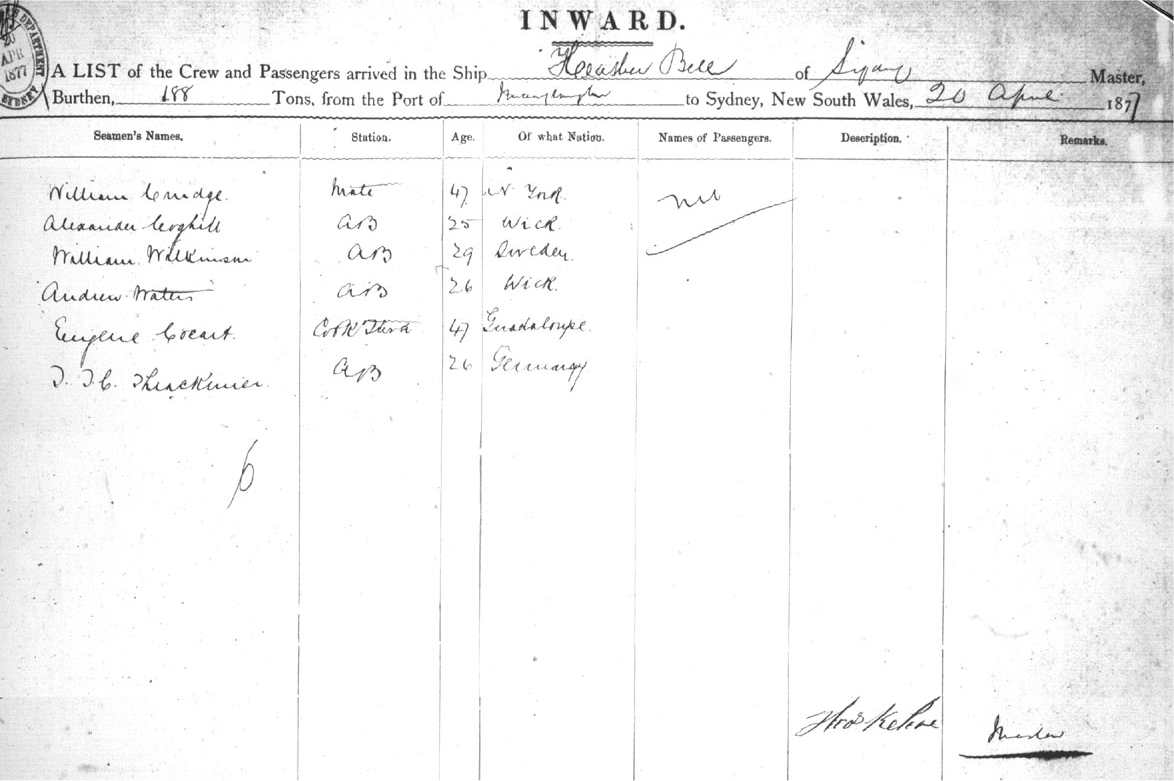 DEPARTMENT
20
APR
1877
SYDNEY
INWARD.
A LIST of the Crew and Passengers arrived in the Ship Heather Bell of Sydney Master,
Burthen, 188 Tons, from the Port of to Sydney, New South Wales, 20 April 1877
Seamen's Names. Station. Age. Of what Nation. Names of Passengers. Description. Remarks.
William Cruidge. Mate 47 N York. Nil
Alexander Coghill AB 25 Wick.
William Wilkinson AB 29 Sweden.
Andrew Waters AB 26 Wick.
Eugene Cocart. Cook & Stwd 47 Guadaloupe.
AB 26 Germany
6
Thos Kehoe Master